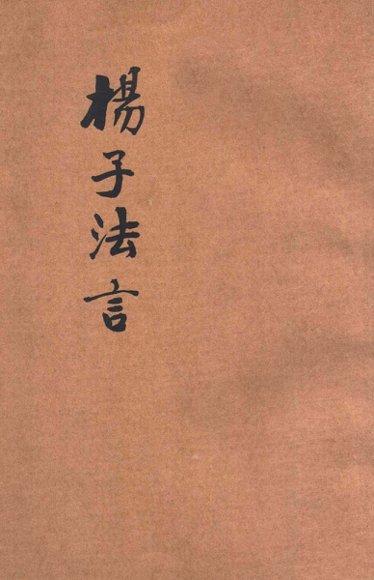 楊子法言